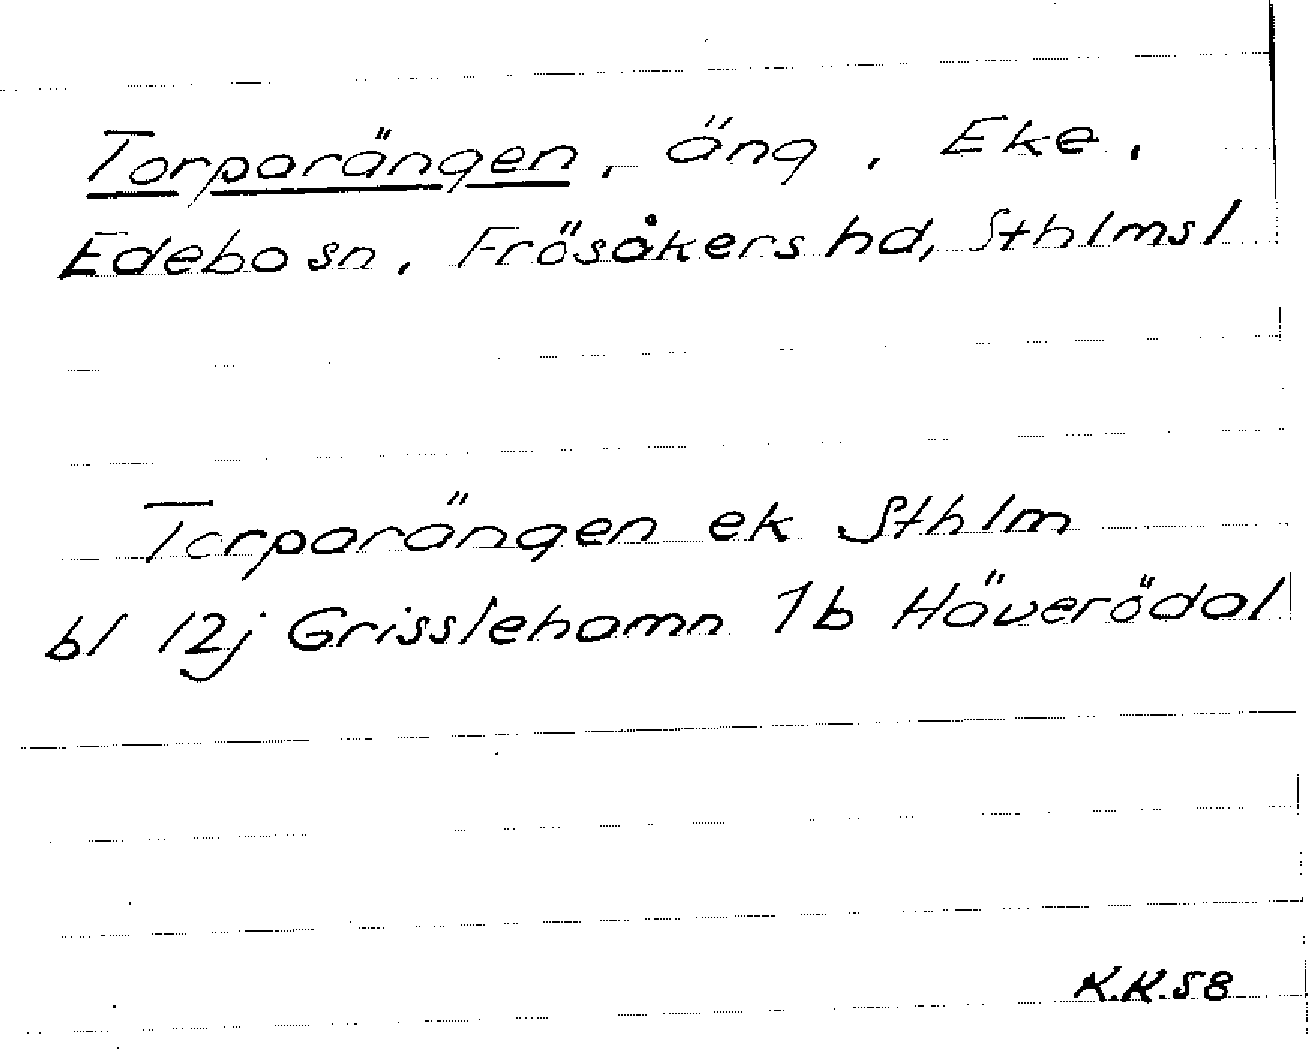 Torparängen, äng, Eke,
Edebo sn, Frösåkers hd, Sthlms l
Torparängen ek Sthlm
bl 12j Grisslehamn 1b Häverödal
K.K.58